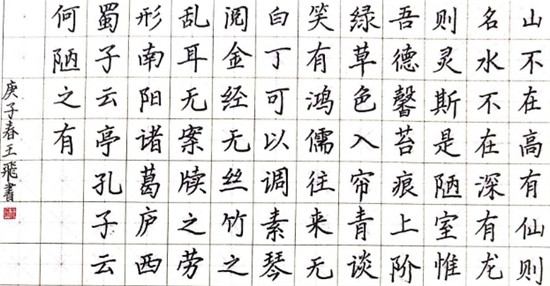 山不在高有仙则
名水不在深有龙
则灵斯是陋室惟
吾德馨苔痕上阶
绿草色入帘青谈
笑有鸿儒往来无
白丁可以调素琴
阅金经无丝竹之
乱耳无案牍之劳
形南阳诸葛庐西
蜀子云亭孔子云
何陋之有
庚子春王飛書